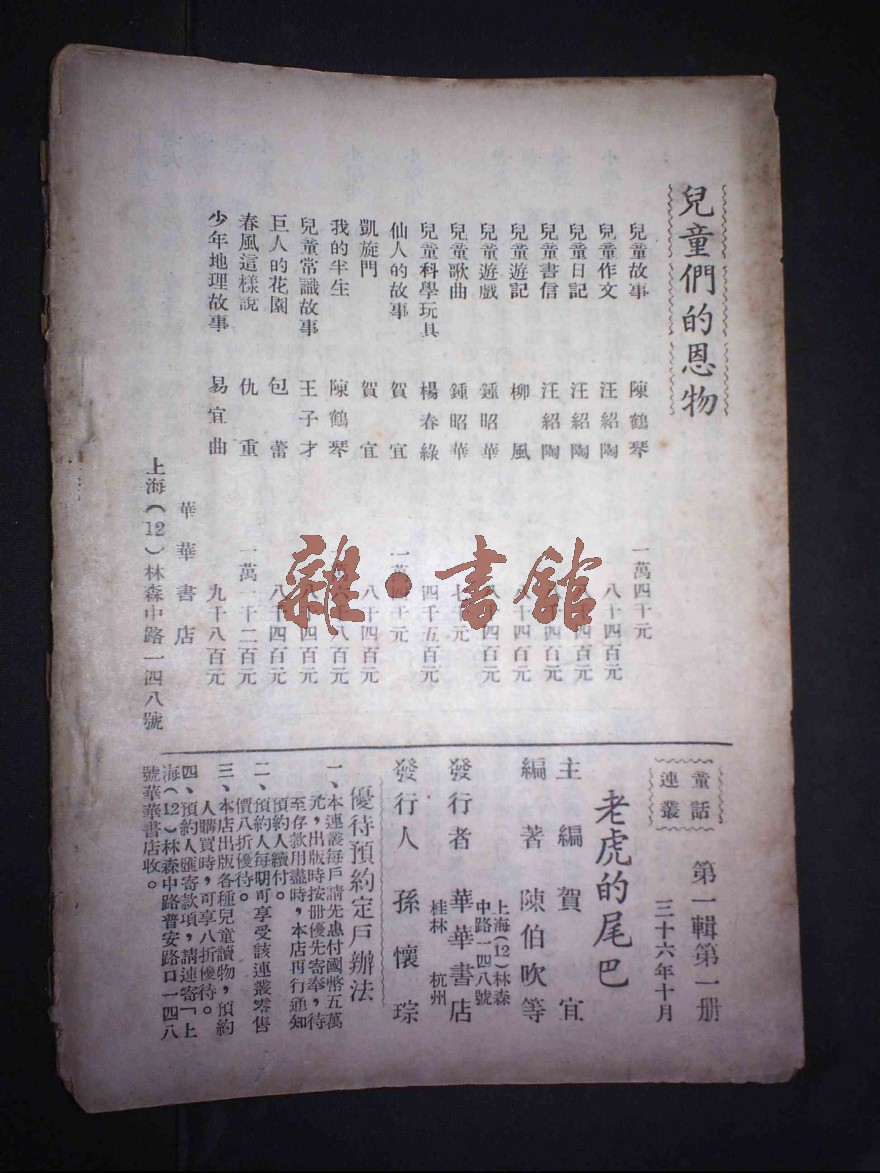 兒童們的恩物
兒童故事 陳鶴琴 一萬四千元
兒童作文 汪紹陶 八千四百元
兒童日記 汪紹陶 八千四百元
兒童書信 汪紹陶 八千四百元
兒童遊記 柳風 八千四百元
兒童遊戲 鍾昭華 八千四百元
兒童歌曲 鍾昭華 七千元
兒童科學玩具 楊春綠 四千五百元
仙人的故事 賀宜 一萬四千元
凱旋門 賀宜 八千四百元
我的半生 陳鶴琴 八百元
兒童常識故事 王子才 八千四百元
巨人的花園 包蕾 八千四百元
春風這樣說 仇重 一萬一千二百元
少年地理故事 易宜曲 九千八百元
華華書店
上海(12)林森中路一四八號
雜·書館
童話
連叢
第一輯第一册
三十六年十月
老虎的尾巴
主編 賀宜
編著 陳伯吹等
發行者 華華書店
上海(12)林森
中路一四八號
桂林 杭州
發行人 孫懷琮
優待預約定戶辦法
一、本連叢每戶請先惠付國幣五萬
元，出版時按册優先寄奉，待
至存款用盡時，本店再行通知
預約人續付。
二、預約人每期可享受該連叢零售
價八折優待。
三、本店出版各種兒童讀物，預約
人購買時，可享八折優待。
四、預約人匯寄款項，請速寄「上
海(12)林森中路普安路口一四八
號華華書店收。